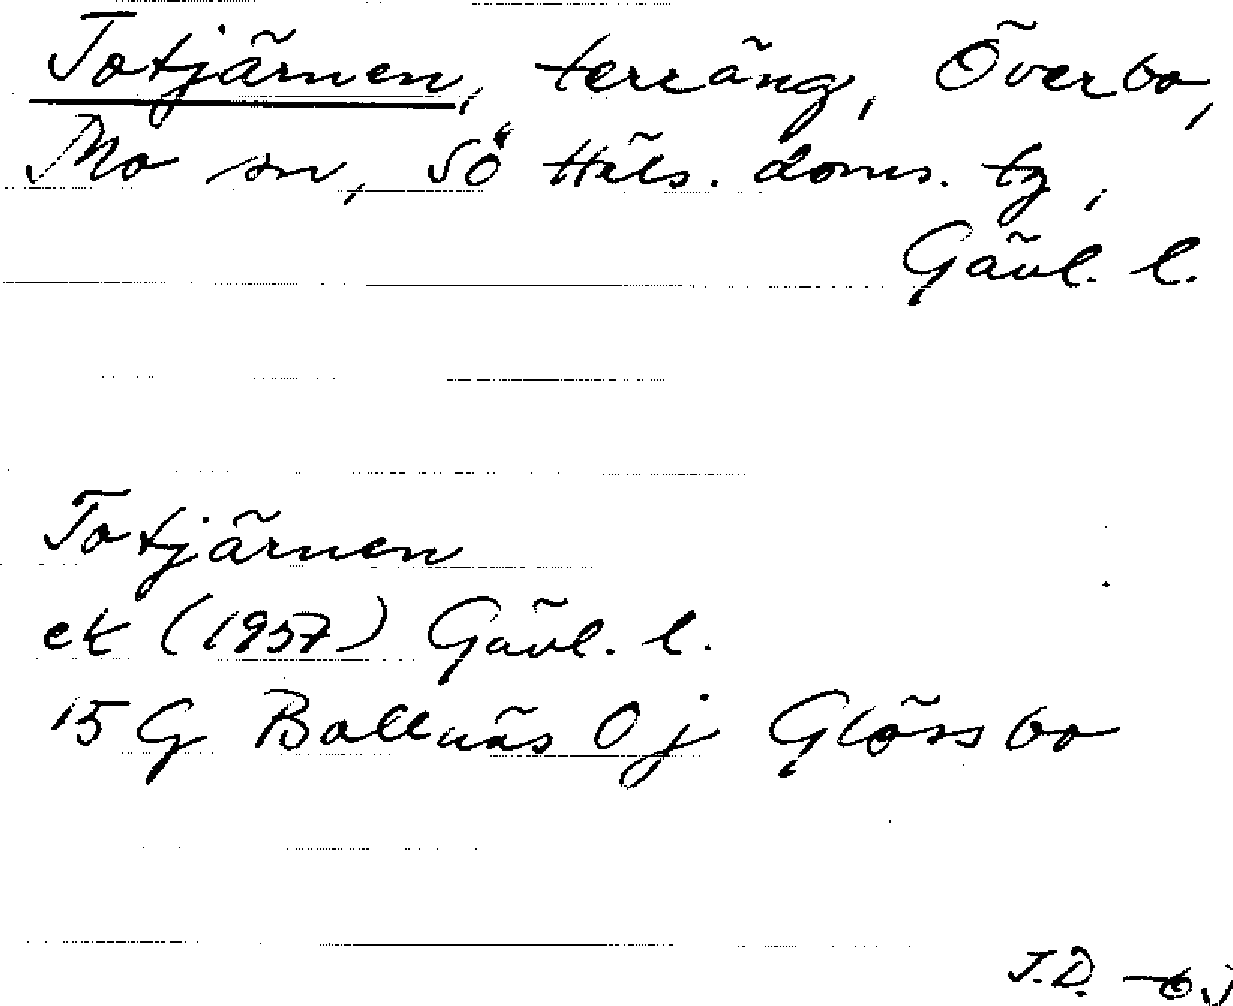 Totjärnen, terräng, Överbo,
Mo sn, Sö Häls. doms. tg,
Gävl. l.
Totjärnen
ek (1957) Gävl. l.
15 G Bollnäs 0 j Glössbo
J.D.